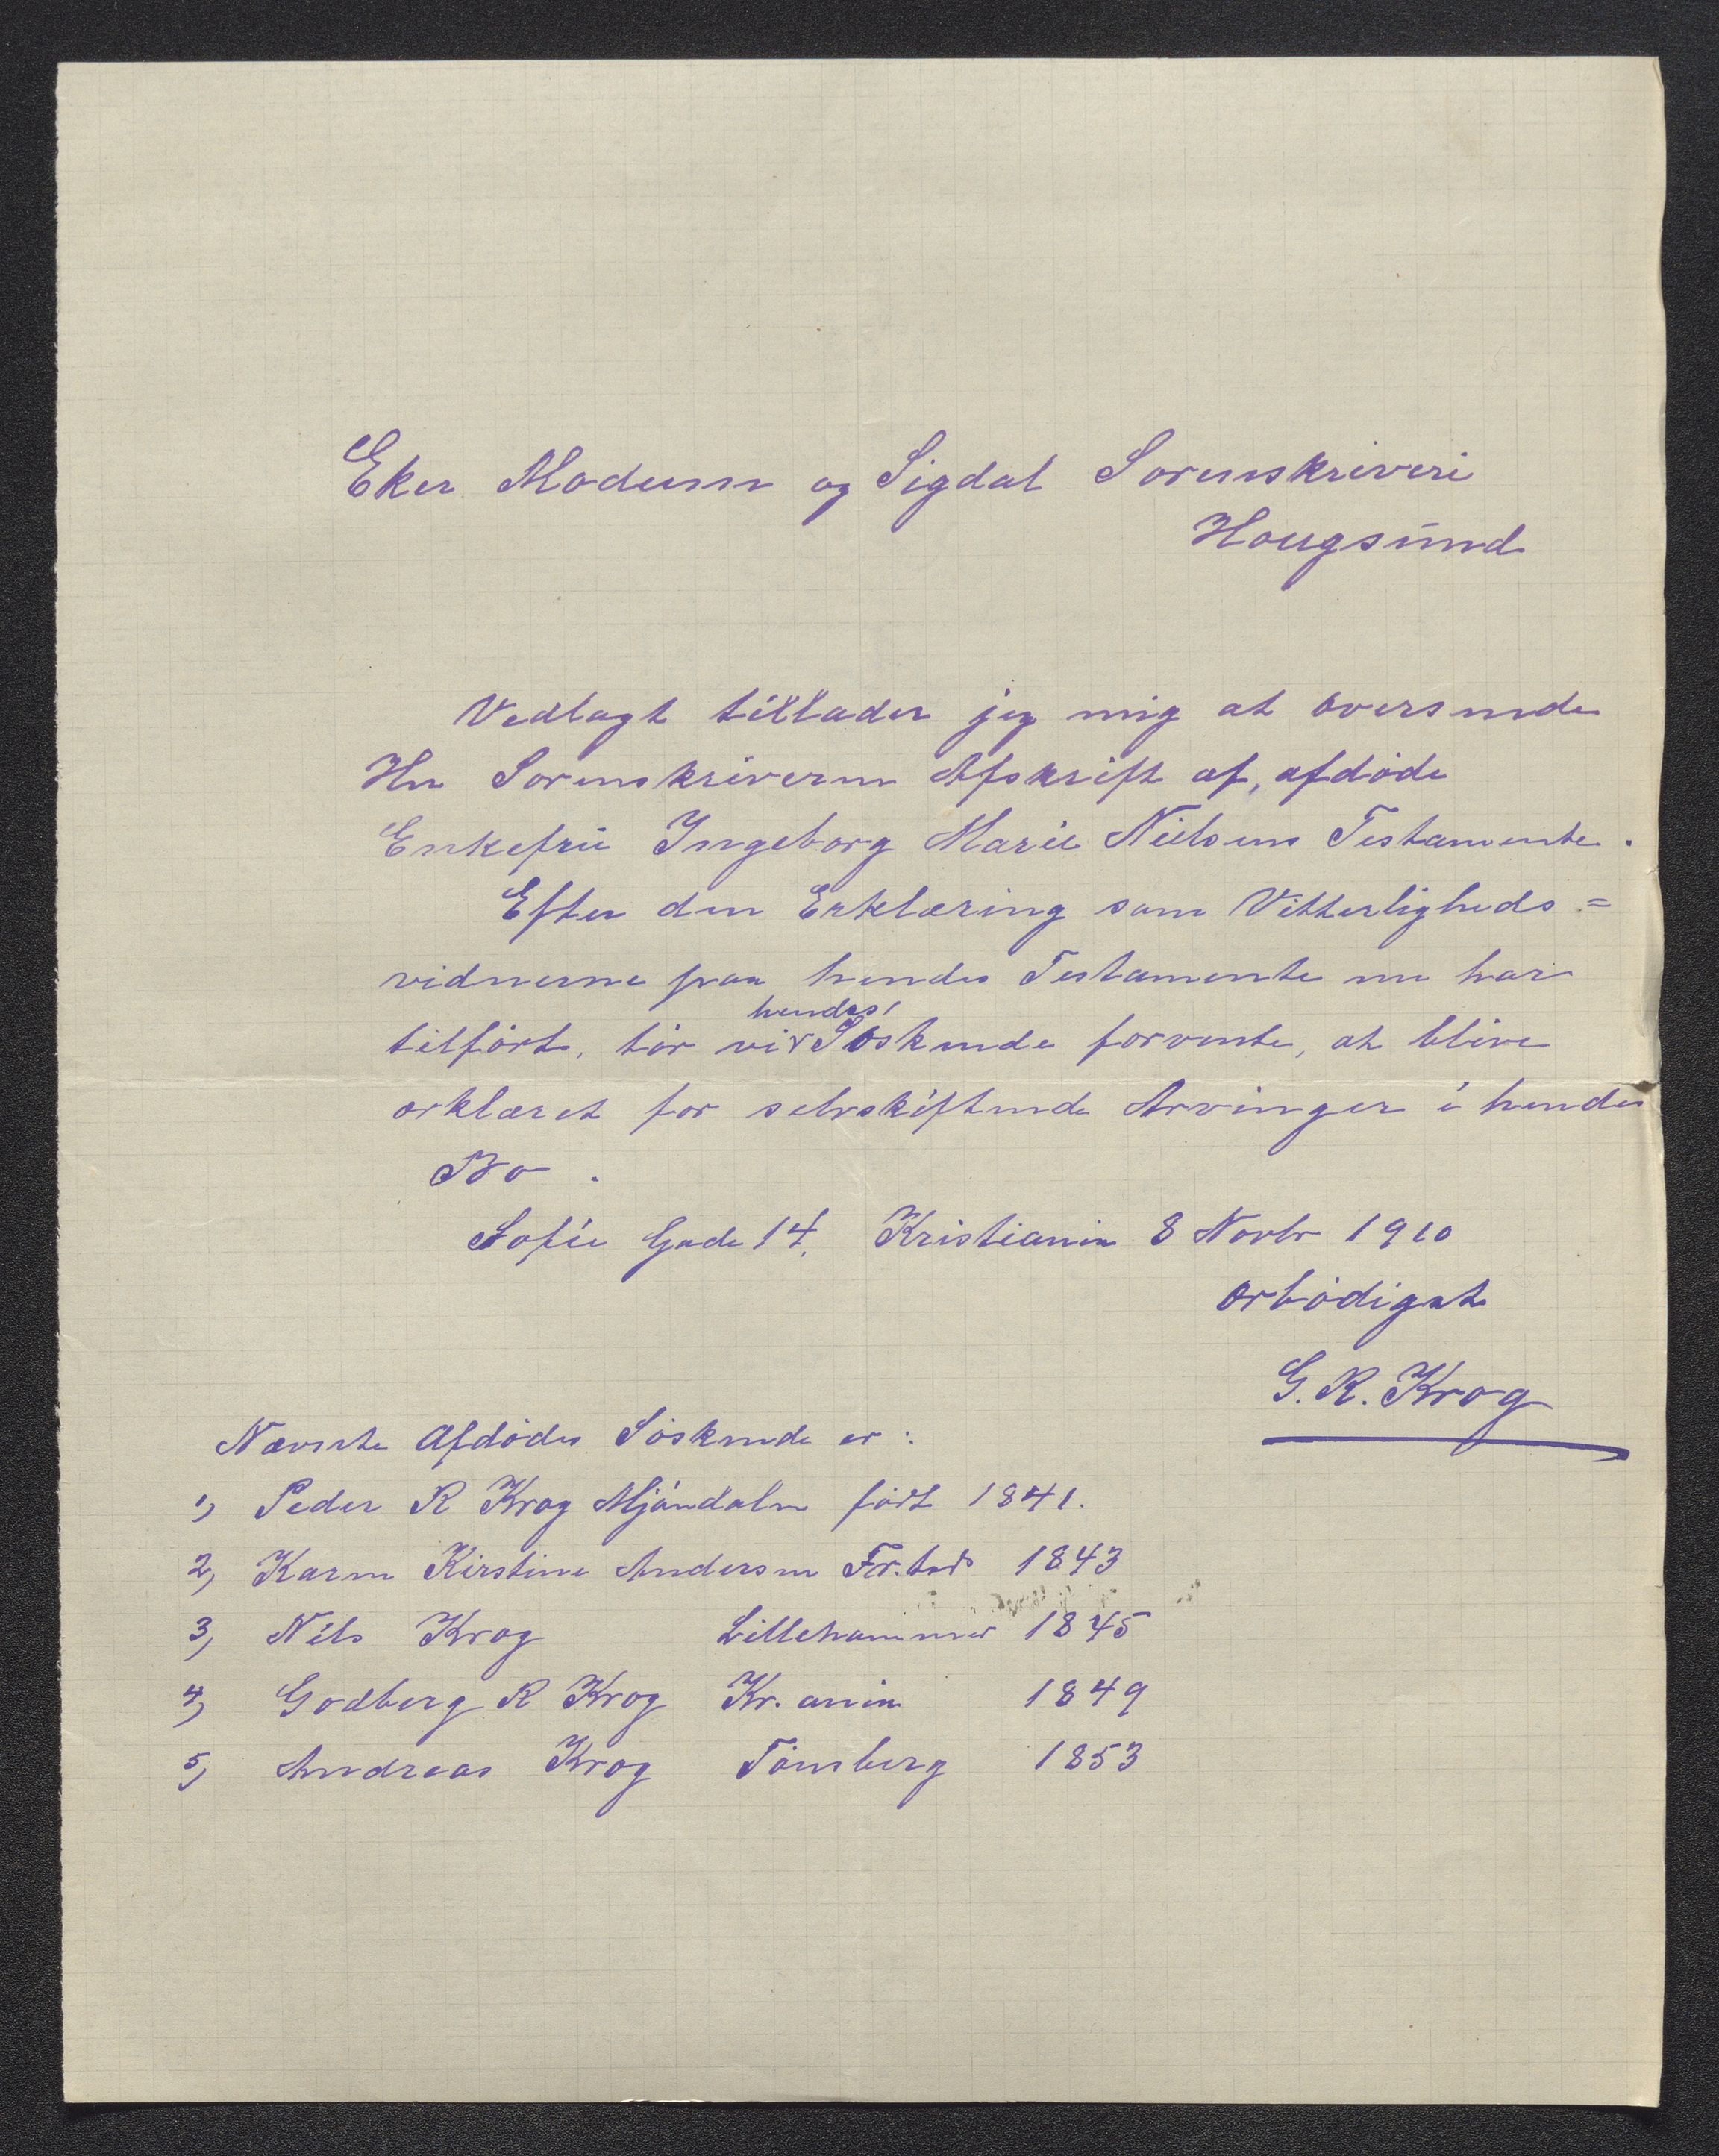 Eker Modum og Sigdal Sorenskriveri
Hougsund
Vedlagt tillader jeg mig at oversende
Hr Sorenskriveren Afskrift af, afdøde
Enkefru Ingeborg Marie Nielsens Testamente.
Efter den Erklæring som Vitterligheds=
vidnerne paa hendes Testamente nu har
hendes
tilført, tør vi Søskende forvente, at blive
erklæret for selvskiftende Arvinger i hendes
Bo.
Sofie Gade 14, Kristiania 8 Novbr 1910
Ærbødigst
G. R. Krog
Nævnte Afdødes Søskende er:
1) Peder R Krog Mjøndalen født 1841.
2) Karen Kirstine Andersen Fr.stad 1843
3) Nils Krog Lillehammer 1845
4) Godberg R Krog Kr.ania 1849
5) Andreas Krog Tønsberg 1853